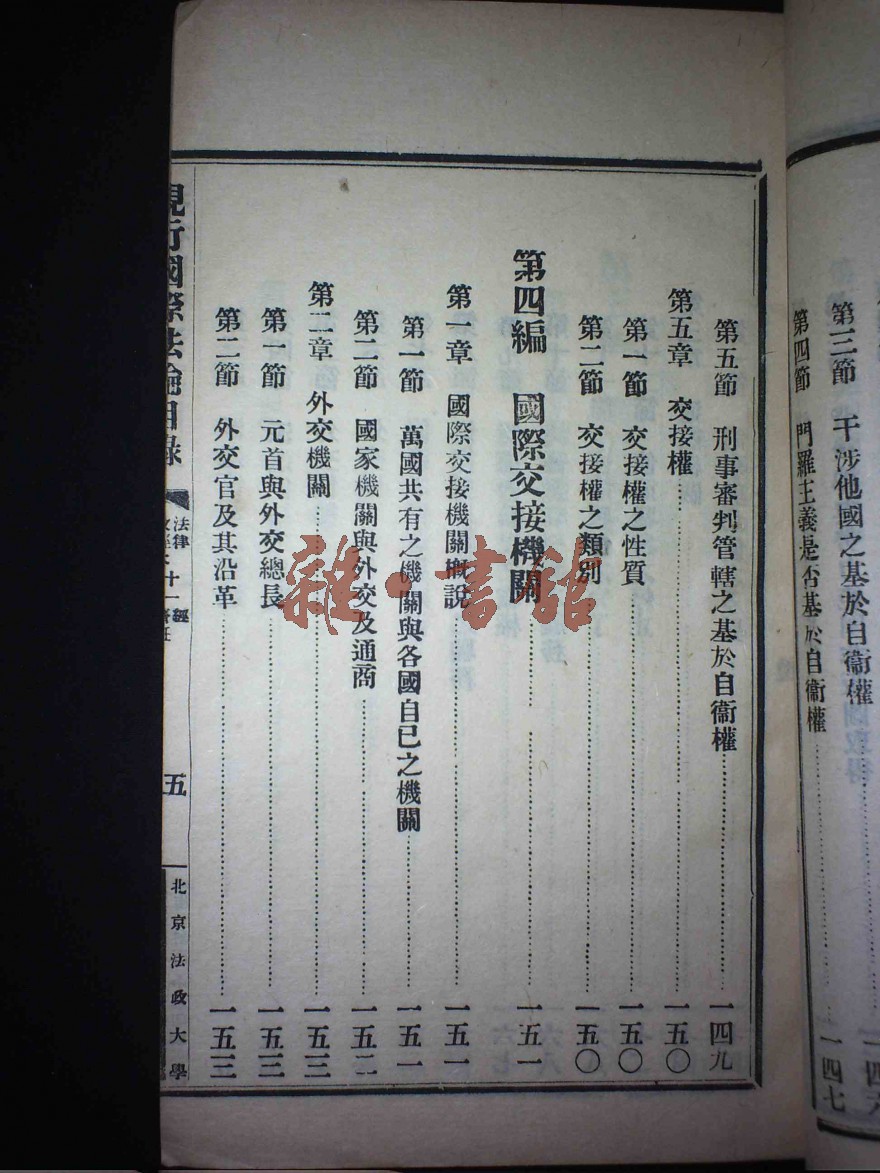 第三節 干涉他國之基於自衞權
第四節 門羅主義是否基於自衞權……一四七
第五節 刑事審判管轄之基於自衞權……一四九
第五章 交接權……一五〇
第一節 交接權之性質……一五〇
第二節 交接權之類別……一五〇
第四編 國際交接機關……一五一
第一章 國際交接機關概說……一五一
第一節 萬國共有之機關與各國自已之機關……一五一
第二節 國家機關與外交及通商……一五二
第二章 外交機關……一五三
第一節 元首與外交總長……一五三
第二節 外交官及其沿革……一五三
現行國際法論目錄
法律
五
北京法政大學
雜·書館